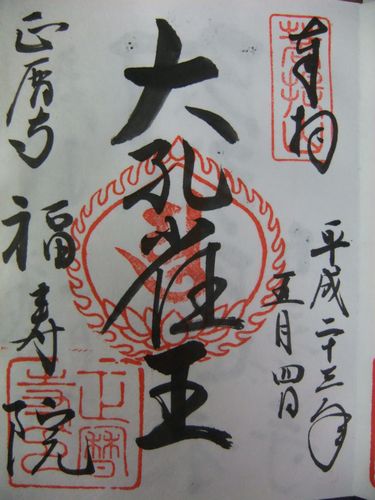 奉拝
平成二十三年
五月四日
大孔雀王
正暦寺 福寿院